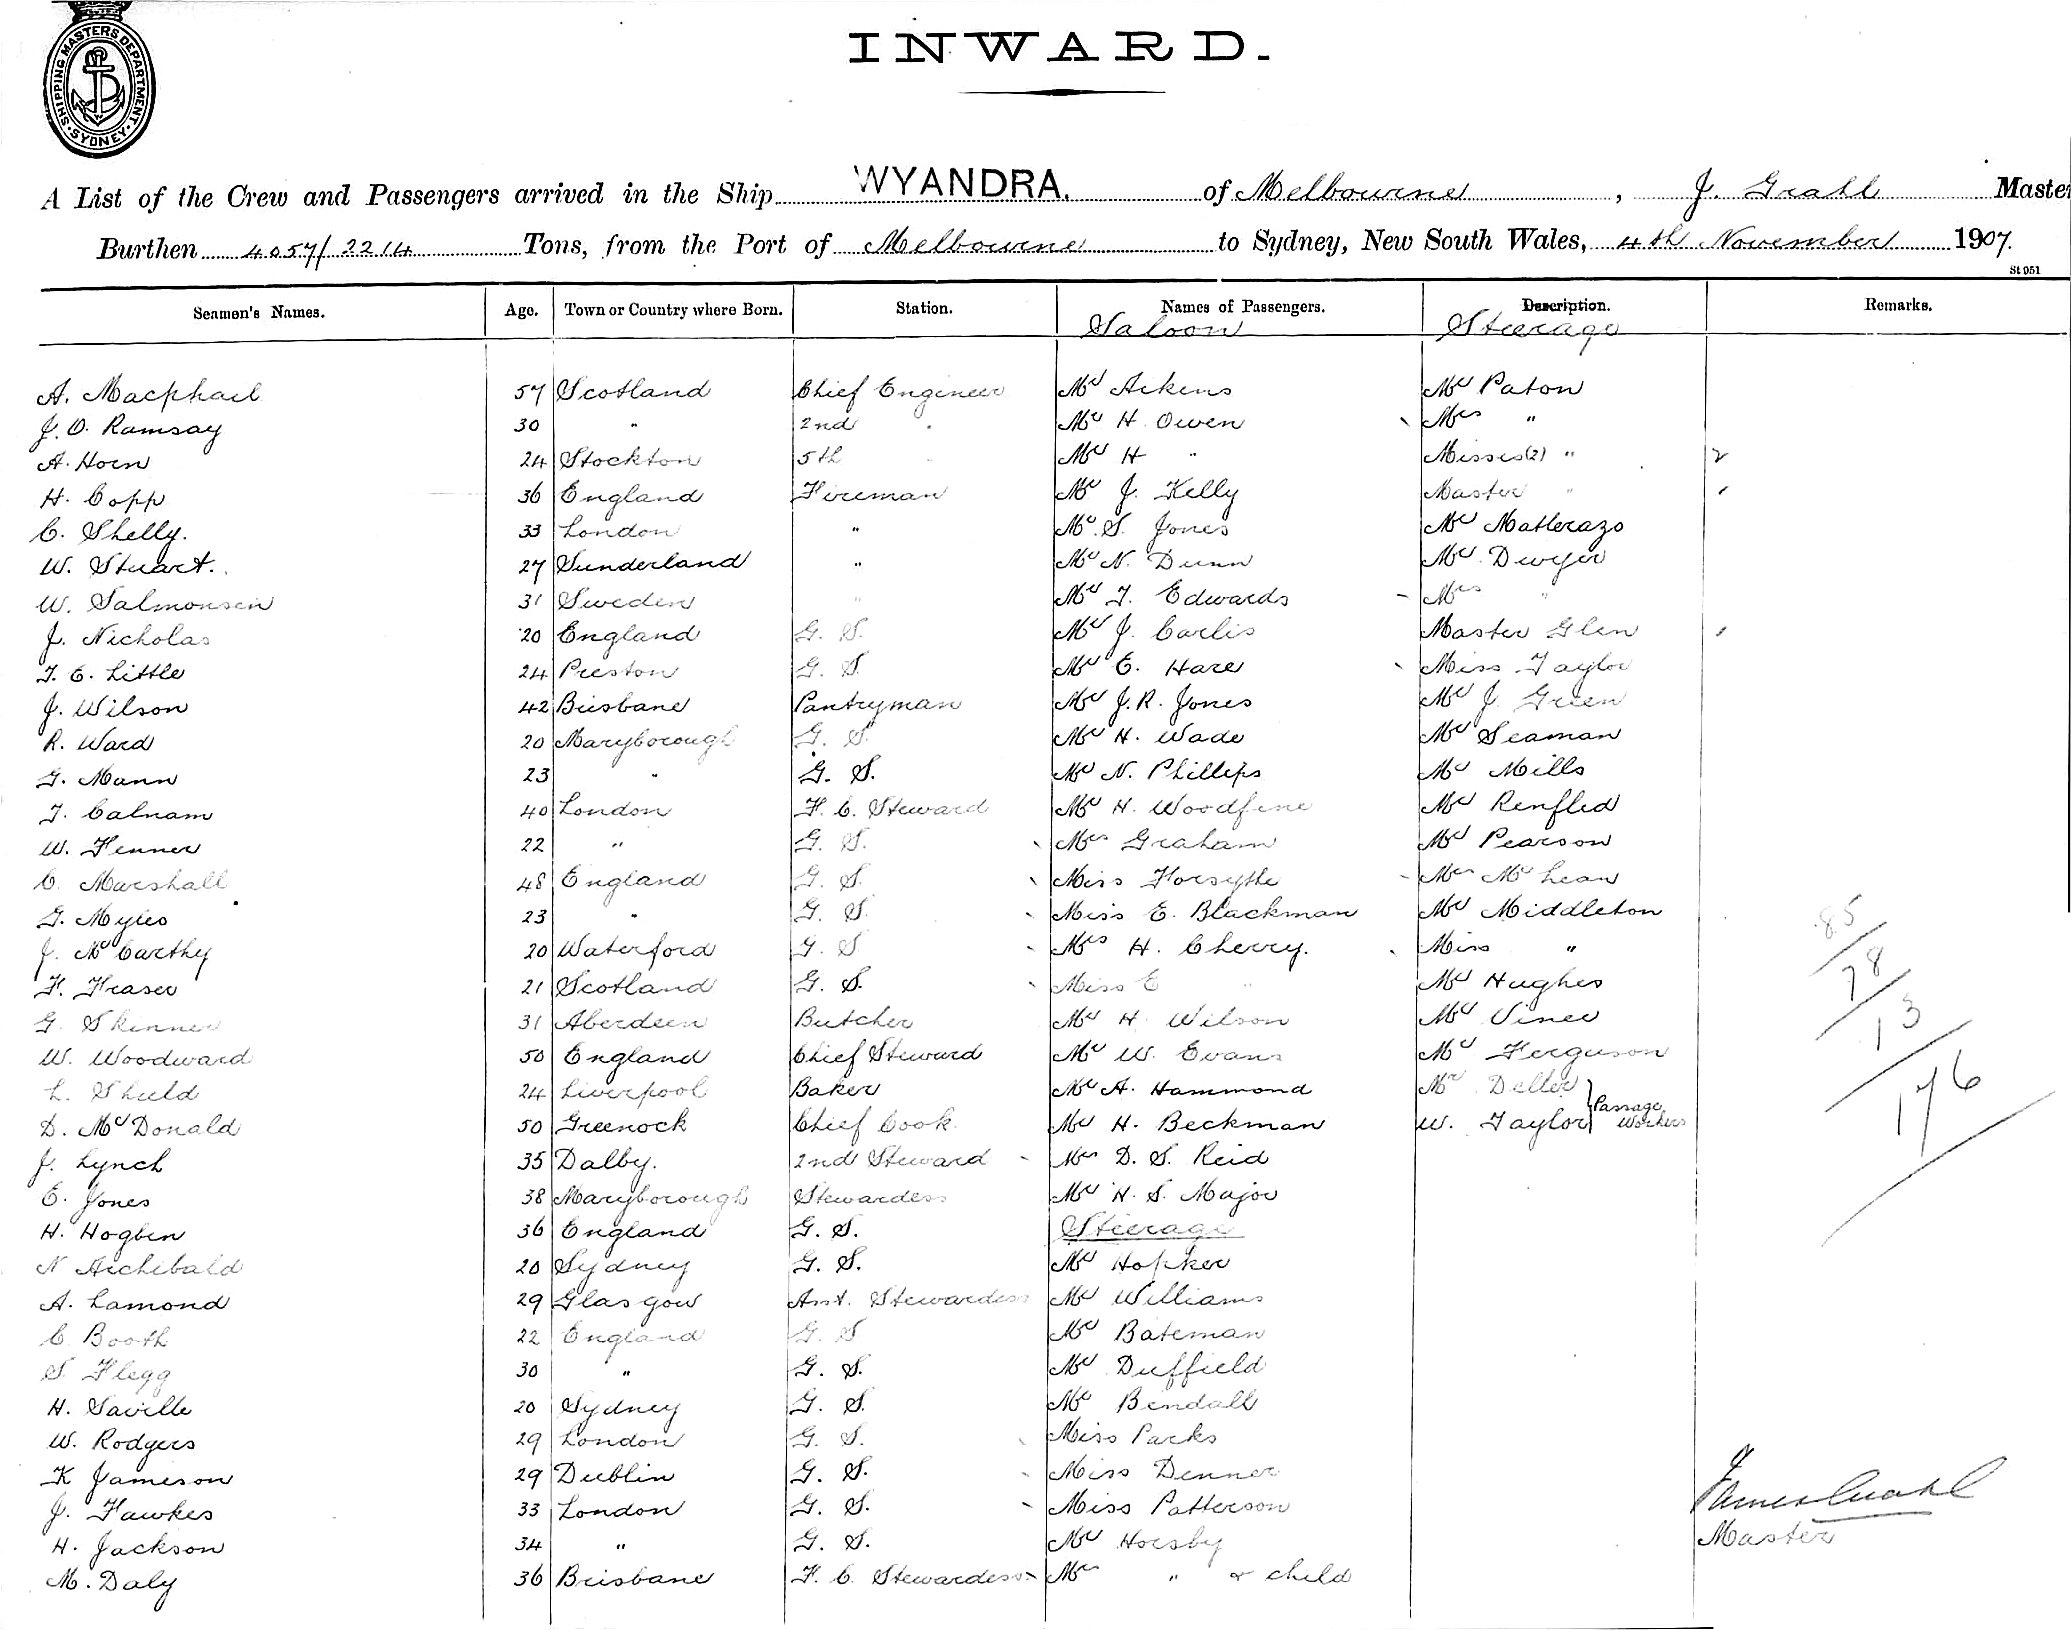 SHIPPING MASTERS DEPARTMENT. SYDNEY.
INWARD.
A List of the Crew and Passengers arrived in the Ship WYANDRA. of Melbourne, J. Grahl Master
Burthen 4057/2214 Tons, from the Port of Melbourne to Sydney, New South Wales, 4th November 1907.
St 951
Seamen's Names. Age. Town or Country where Born. Station. Names of Passengers. Description. Remarks.
Saloon Steerage
A. Macphail 57 Scotland Chief Engineer Mr Aikens Mr Paton
J. O. Ramsay 30 " 2nd " Mr H. Owen Mrs "
A. Horn 24 Stockton 5th " Mr H " Misses (2) " 2
H. Copp 36 England Fireman Mr J. Kelly Master "
C. Shelly. 33 London " Mr S. Jones Mr Matterazo
W. Stuart. 27 Sunderland " Mr N. Dunn Mr Dwyer
W. Salmonsen 31 Sweden " Mr T. Edwards Mrs "
J. Nicholas 20 England G. S. Mr J. Carlis Master Glen
T. E. Little 24 Preston G. S. Mr E. Hare Miss Taylor
J. Wilson 42 Brisbane Pantryman Mr J. R. Jones Mr J. Green
R. Ward 20 Maryborough G. S. Mr H. Wade Mr Seaman
G. Mann 23 " G. S. Mr N. Phillips Mr Mills
T. Calnam 40 London F. C. Steward Mr H. Woodfine Mr Renfled
W. Fenner 22 " G. S. Mrs Graham Mr Pearson
C. Marshall 48 England G. S. Miss Forsythe Mrs McLean
G. Myles 23 " G. S. Miss E. Blackman Mr Middleton
J. McCarthy 20 Waterford G. S Mrs H. Cherry. Miss "
F. Fraser 21 Scotland G. S. Miss E " Mr Hughes
G. Skinner 31 Aberdeen Butcher Mr H. Wilson Mr Viner
W. Woodward 50 England Chief Steward Mr W. Evans Mr Ferguson
L. Shield 24 Liverpool Baker Mr A. Hammond Mr Deller
D. McDonald 50 Greenock Chief Cook. Mr H. Beckman W. Taylor Passage Workers
J. Lynch 35 Dalby. 2nd Steward Mrs D. S. Reid
E. Jones 38 Maryborough Stewardess Mr H. S. Major
H. Hogben 36 England G. S. Steerage
N Archibald 20 Sydney G. S. Mr Hopker
A. Lamond 29 Glasgow Asst. Stewardess Mr Williams
C Booth 22 England G. S Mr Bateman
S. Flegg 30 " G. S. Mr Duffield
H. Saville 20 Sydney G. S. Mr Bendall
W. Rodgers 29 London G. S. Miss Parks
K Jameson 29 Dublin G. S. Miss Denner
J. Fawkes 33 London G. S. Miss Patterson
H. Jackson 34 " G. S. Mr Horsby
M. Daly 36 Brisbane F. C. Stewardess Mrs " & child
85
78
13
176
James Grahl
Master